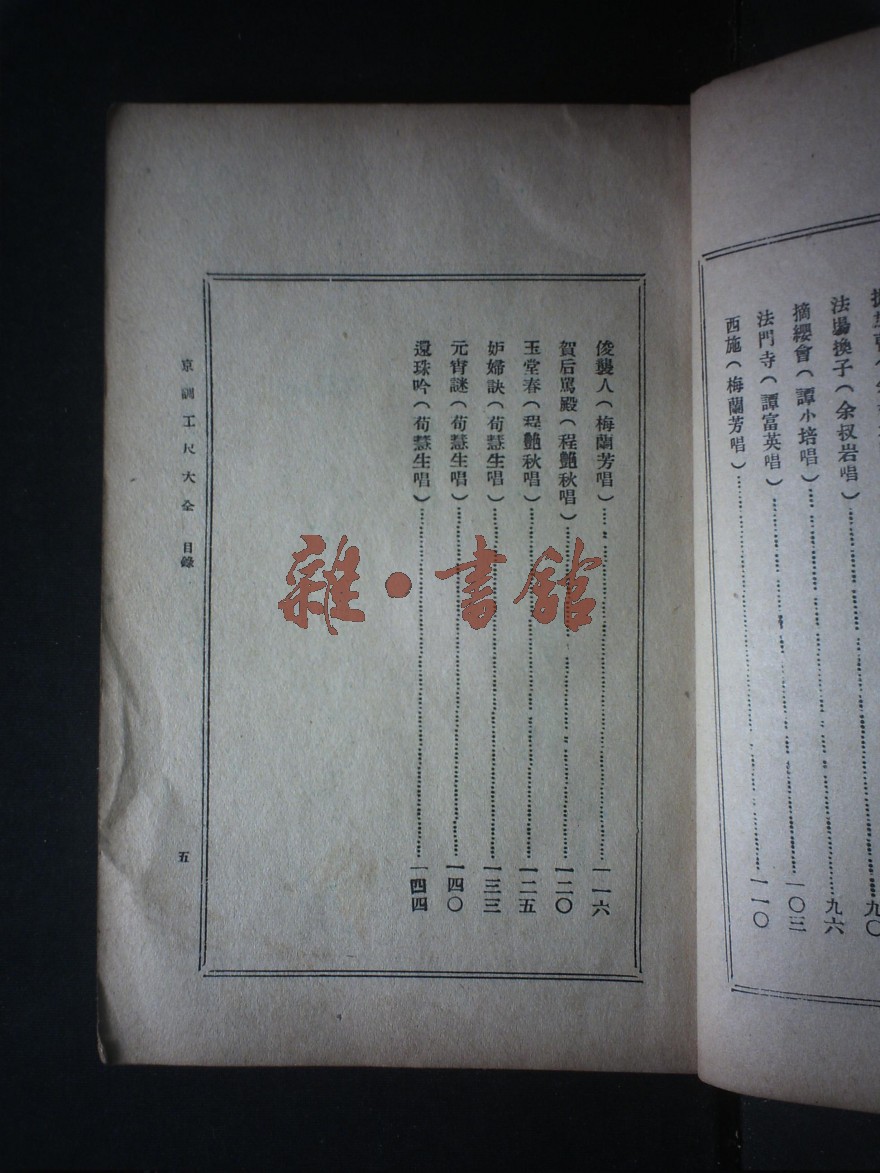 法場換子(余叔岩唱)……九〇
摘纓會(譚小培唱)……九六
法門寺(譚富英唱)……一〇三
西施(梅蘭芳唱)……一一〇
俊襲人(梅蘭芳唱)……一一六
賀后罵殿(程艶秋唱)……一二〇
玉堂春(程艶秋唱)……一二五
妒婦訣(荀慧生唱)……一三三
元宵謎(荀慧生唱)……一四〇
還珠吟(荀慧生唱)……一四四
京調工尺大全 目錄 五
雜·書館